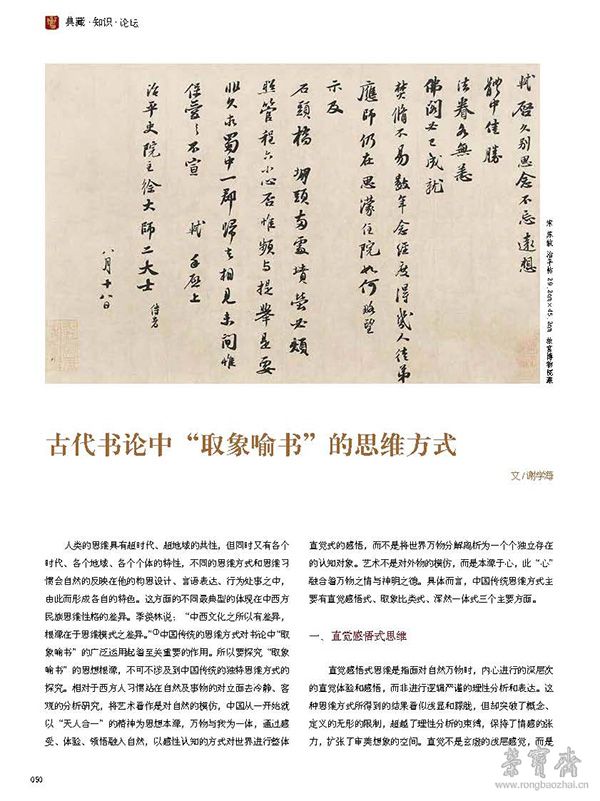 典藏·知识·论坛
轼启久别思念不忘远想
體中佳勝
法眷各無恙
佛閣必已成就
焚脩不易數年念经度得幾人徒弟
應師仍在思濛住院如何略望
示及
石頭橋堋頭兩處墳塋必煩
照管程六小心否惟頻与提舉是要
非久求蜀中一郡歸去相見未間惟
保愛之不宣 軾手啟上
治平史院主徐大師二大士 侍者
八月十八日
宋 苏轼 治平帖 29.2cm×45.2cm 故宫博物院藏
古代书论中“取象喻书”的思维方式
文/谢学海
人类的思维具有超时代、超地域的共性，但同时又有各个
时代、各个地域、各个个体的特性，不同的思维方式和思维习
惯会自然的反映在他的构思设计、言语表达、行为处事之中，
由此而形成各自的特色。这方面的不同最典型的体现在中西方
民族思维性格的差异。季羡林说：“中西文化之所以有差异，
根源在于思维模式之差异。”①中国传统的思维方式对书论中“取
象喻书”的广泛运用起着至关重要的作用。所以要探究“取象
喻书”的思想根源，不可不涉及到中国传统的独特思维方式的
探究。相对于西方人习惯站在自然及事物的对立面去冷静、客
观的分析研究，将艺术看作是对自然的模仿，中国从一开始就
以“天人合一”的精神为思想本源，万物与我为一体，通过感
受、体验、领悟融入自然，以感性认知的方式对世界进行整体
直觉式的感悟，而不是将世界万物分解离析为一个个独立存在
的认知对象。艺术不是对外物的模仿，而是本源于心，此“心”
融合着万物之情与神明之德。具体而言，中国传统思维方式主
要有直觉感悟式、取象比类式、浑然一体式三个主要方面。
一、直觉感悟式思维
直觉感悟式思维是指面对自然万物时，内心进行的深层次
的直觉体验和感悟，而非进行逻辑严谨的理性分析和表达。这
种思维方式所得到的结果看似浅显和朦胧，但却突破了概念、
定义的无形的限制，超越了理性分析的束缚，保持了情感的张
力，扩张了审美想象的空间。直觉不是玄虚的浅层感觉，而是
050
荣宝斋
www.rongbaozhai.cn